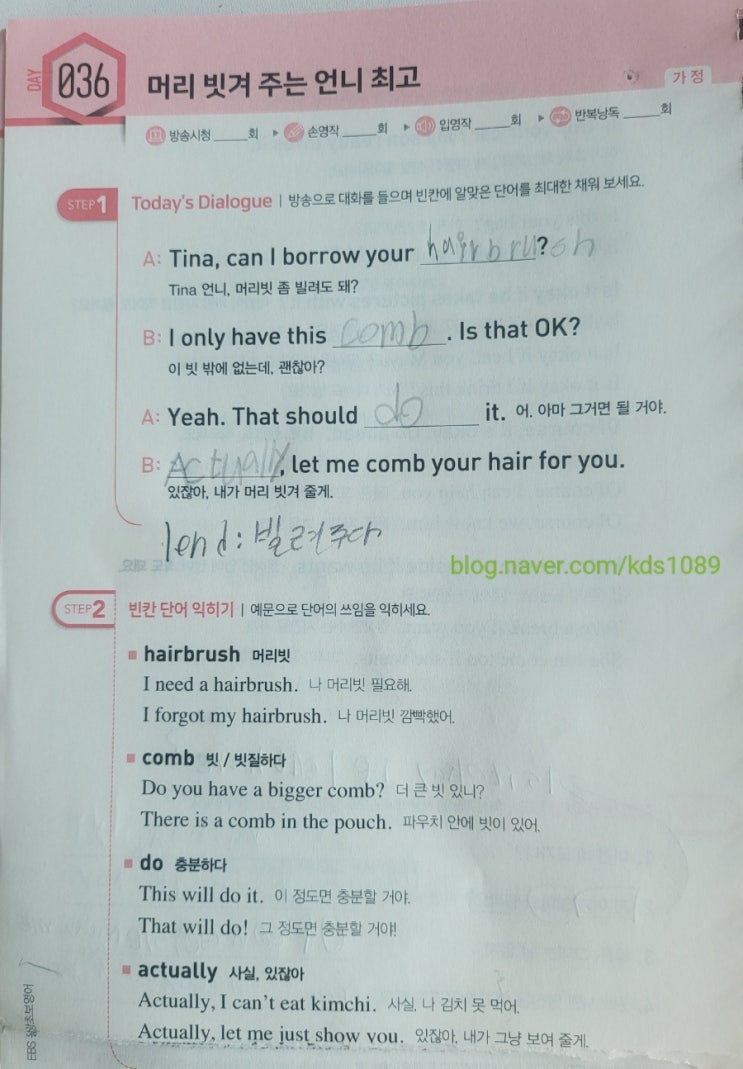 DAY 036 머리 빗겨 주는 언니 최고 가정
방송시청 _____회 ▶ 손영작 _____회 ▶ 입영작 _____회 ▶ 반복낭독 _____회
STEP1 Today's Dialogue | 방송으로 대화를 들으며 빈칸에 알맞은 단어를 최대한 채워 보세요.
A: Tina, can I borrow your hairbrush?
Tina 언니, 머리빗 좀 빌려도 돼?
B: I only have this comb. Is that OK?
이 빗 밖에 없는데, 괜찮아?
A: Yeah. That should do it. 어. 아마 그거면 될 거야.
B: Actually, let me comb your hair for you.
있잖아, 내가 머리 빗겨 줄게.
lend: 빌려주다
blog.naver.com/kds1089
STEP2 빈칸 단어 익히기 | 예문으로 단어의 쓰임을 익히세요.
hairbrush 머리빗
I need a hairbrush. 나 머리빗 필요해.
I forgot my hairbrush. 나 머리빗 깜빡했어.
comb 빗 / 빗질하다
Do you have a bigger comb? 더 큰 빗 있니?
There is a comb in the pouch. 파우치 안에 빗이 있어.
do 충분하다
This will do it. 이 정도면 충분할 거야.
That will do! 그 정도면 충분할 거야!
actually 사실, 있잖아
Actually, I can't eat kimchi. 사실, 나 김치 못 먹어.
Actually, let me just show you. 있잖아, 내가 그냥 보여 줄게.
EBS 왕초보영어